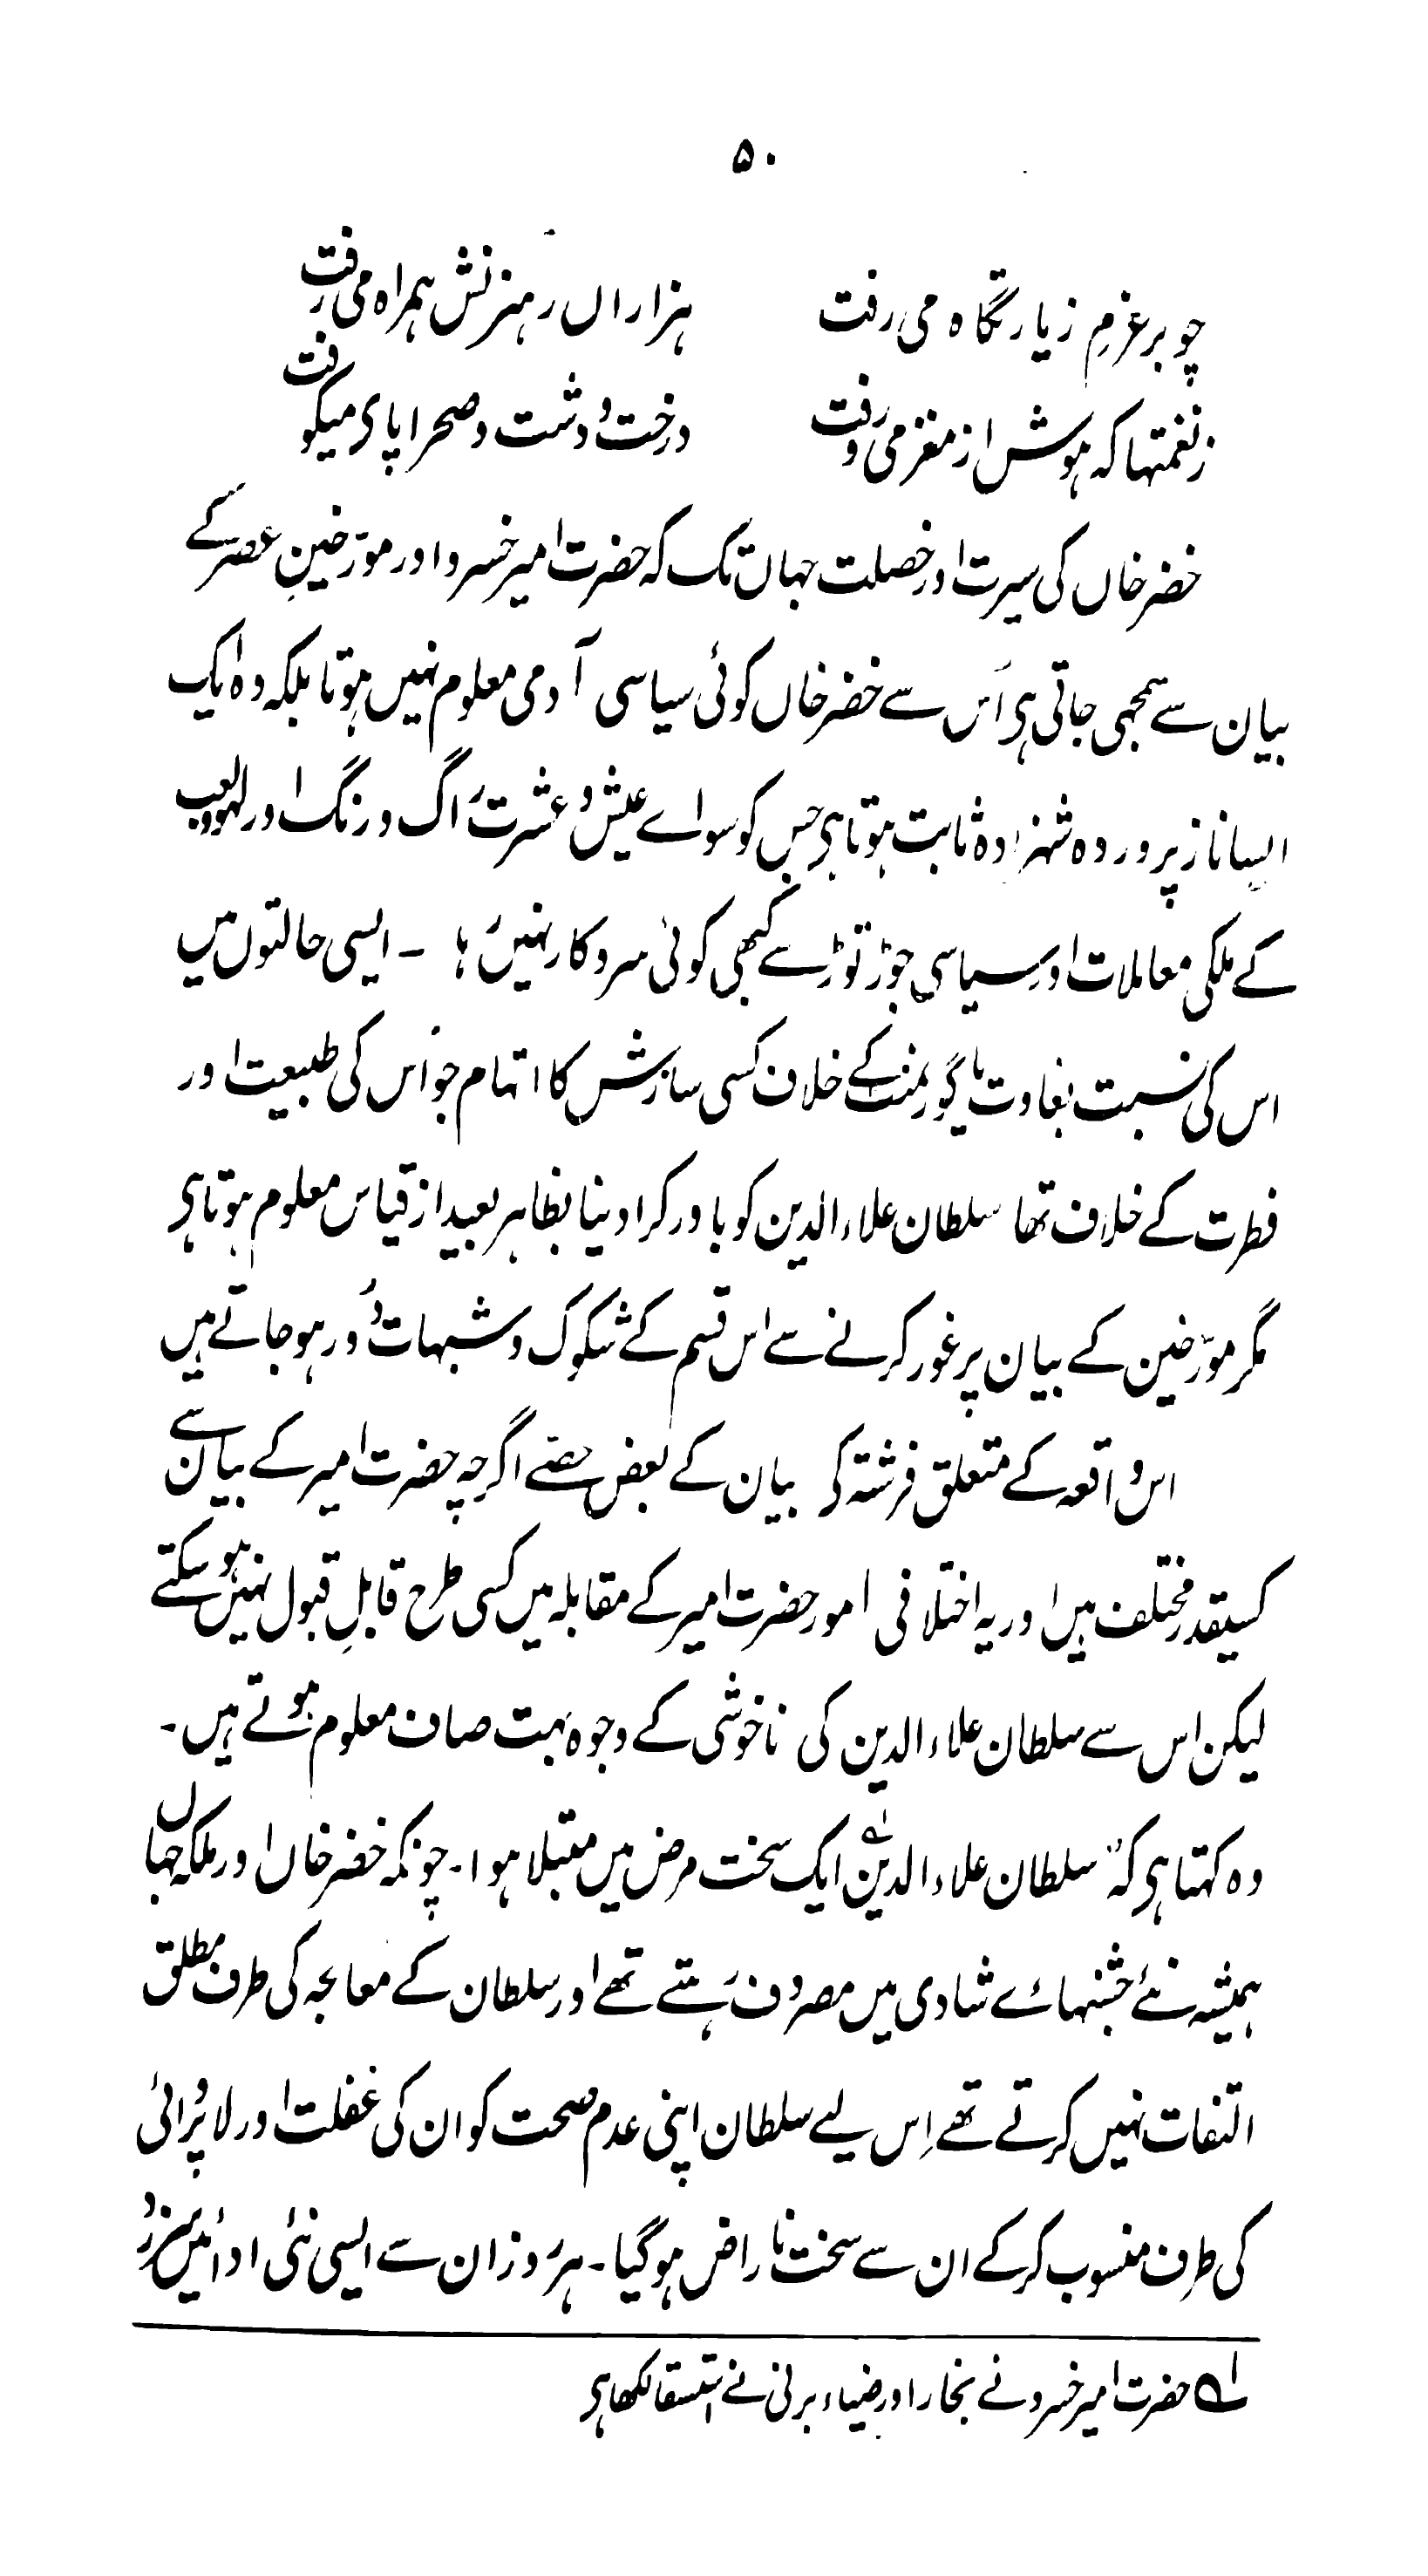 ۵۰
چو بر عزمِ زیارتگاہ می رفت ہزاراں رہزنش ہمراہ می رفت
ز نغمتہا کہ ہوش از مغز می رفت درخت و دشت و صحرا پای میکوفت
خضر خاں کی سیرت اور خصلت جہاں تک کہ حضرت امیر خسرو اور مورّخینِ عصر کے
بیان سے سمجھی جاتی ہی اُس سے خضر خاں کوئی سیاسی آدمی معلوم نہیں ہوتا بلکہ وہ ایک
ایسا ناز پروردہ شہزادہ ثابت ہوتا ہی جس کو سواے عیش و عشرت راگ و رنگ اور لہو و لعب
کے ملکی معاملات اور سیاسی جوڑ توڑ سے کبھی کوئی سروکار نہیں رہا ۔ ایسی حالتوں میں
اس کی نسبت بغاوت یا گورنمنٹ کے خلاف کسی سازش کا اتہام جو اُس کی طبیعت اور
فطرت کے خلاف تھا سلطان علاء الدین کو باور کرا دینا بظاہر بعید از قیاس معلوم ہوتا ہی
مگر مورّخین کے بیان پر غور کرنے سے اس قسم کے شکوک و شبہات دُور ہو جاتے ہیں
اس واقعہ کے متعلق فرشتہ کی بیان کے بعض حصّے اگرچہ حضرت امیر کے بیان سے
کسیقدر مختلف ہیں اور یہ اختلافی امور حضرت امیر کے مقابلہ میں کسی طرح قابلِ قبول نہیں ہو سکتے
لیکن اس سے سلطان علاء الدین کی ناخوشی کے وجوہ بہت صاف معلوم ہوتے ہیں ۔
وہ کہتا ہی کہ ”سلطان علاء الدین ؂۱ ایک سخت مرض میں مبتلا ہوا ۔ چونکہ خضر خاں اور ملکہ جہاں
ہمیشہ نئے جشنہائے شادی میں مصروف رہتے تھے اور سلطان کے معالجہ کی طرف مطلق
التفات نہیں کرتے تھے اِس لیے سلطان اپنی عدم صحت کو ان کی غفلت اور لاپروائی
کی طرف منسوب کرکے ان سے سخت ناراض ہو گیا ۔ ہر روز ان سے ایسی نئی ادائیں سرزد
؂۱ حضرت امیر خسرو نے بخار اور ضیاء برنی نے استسقا لکھا ہی